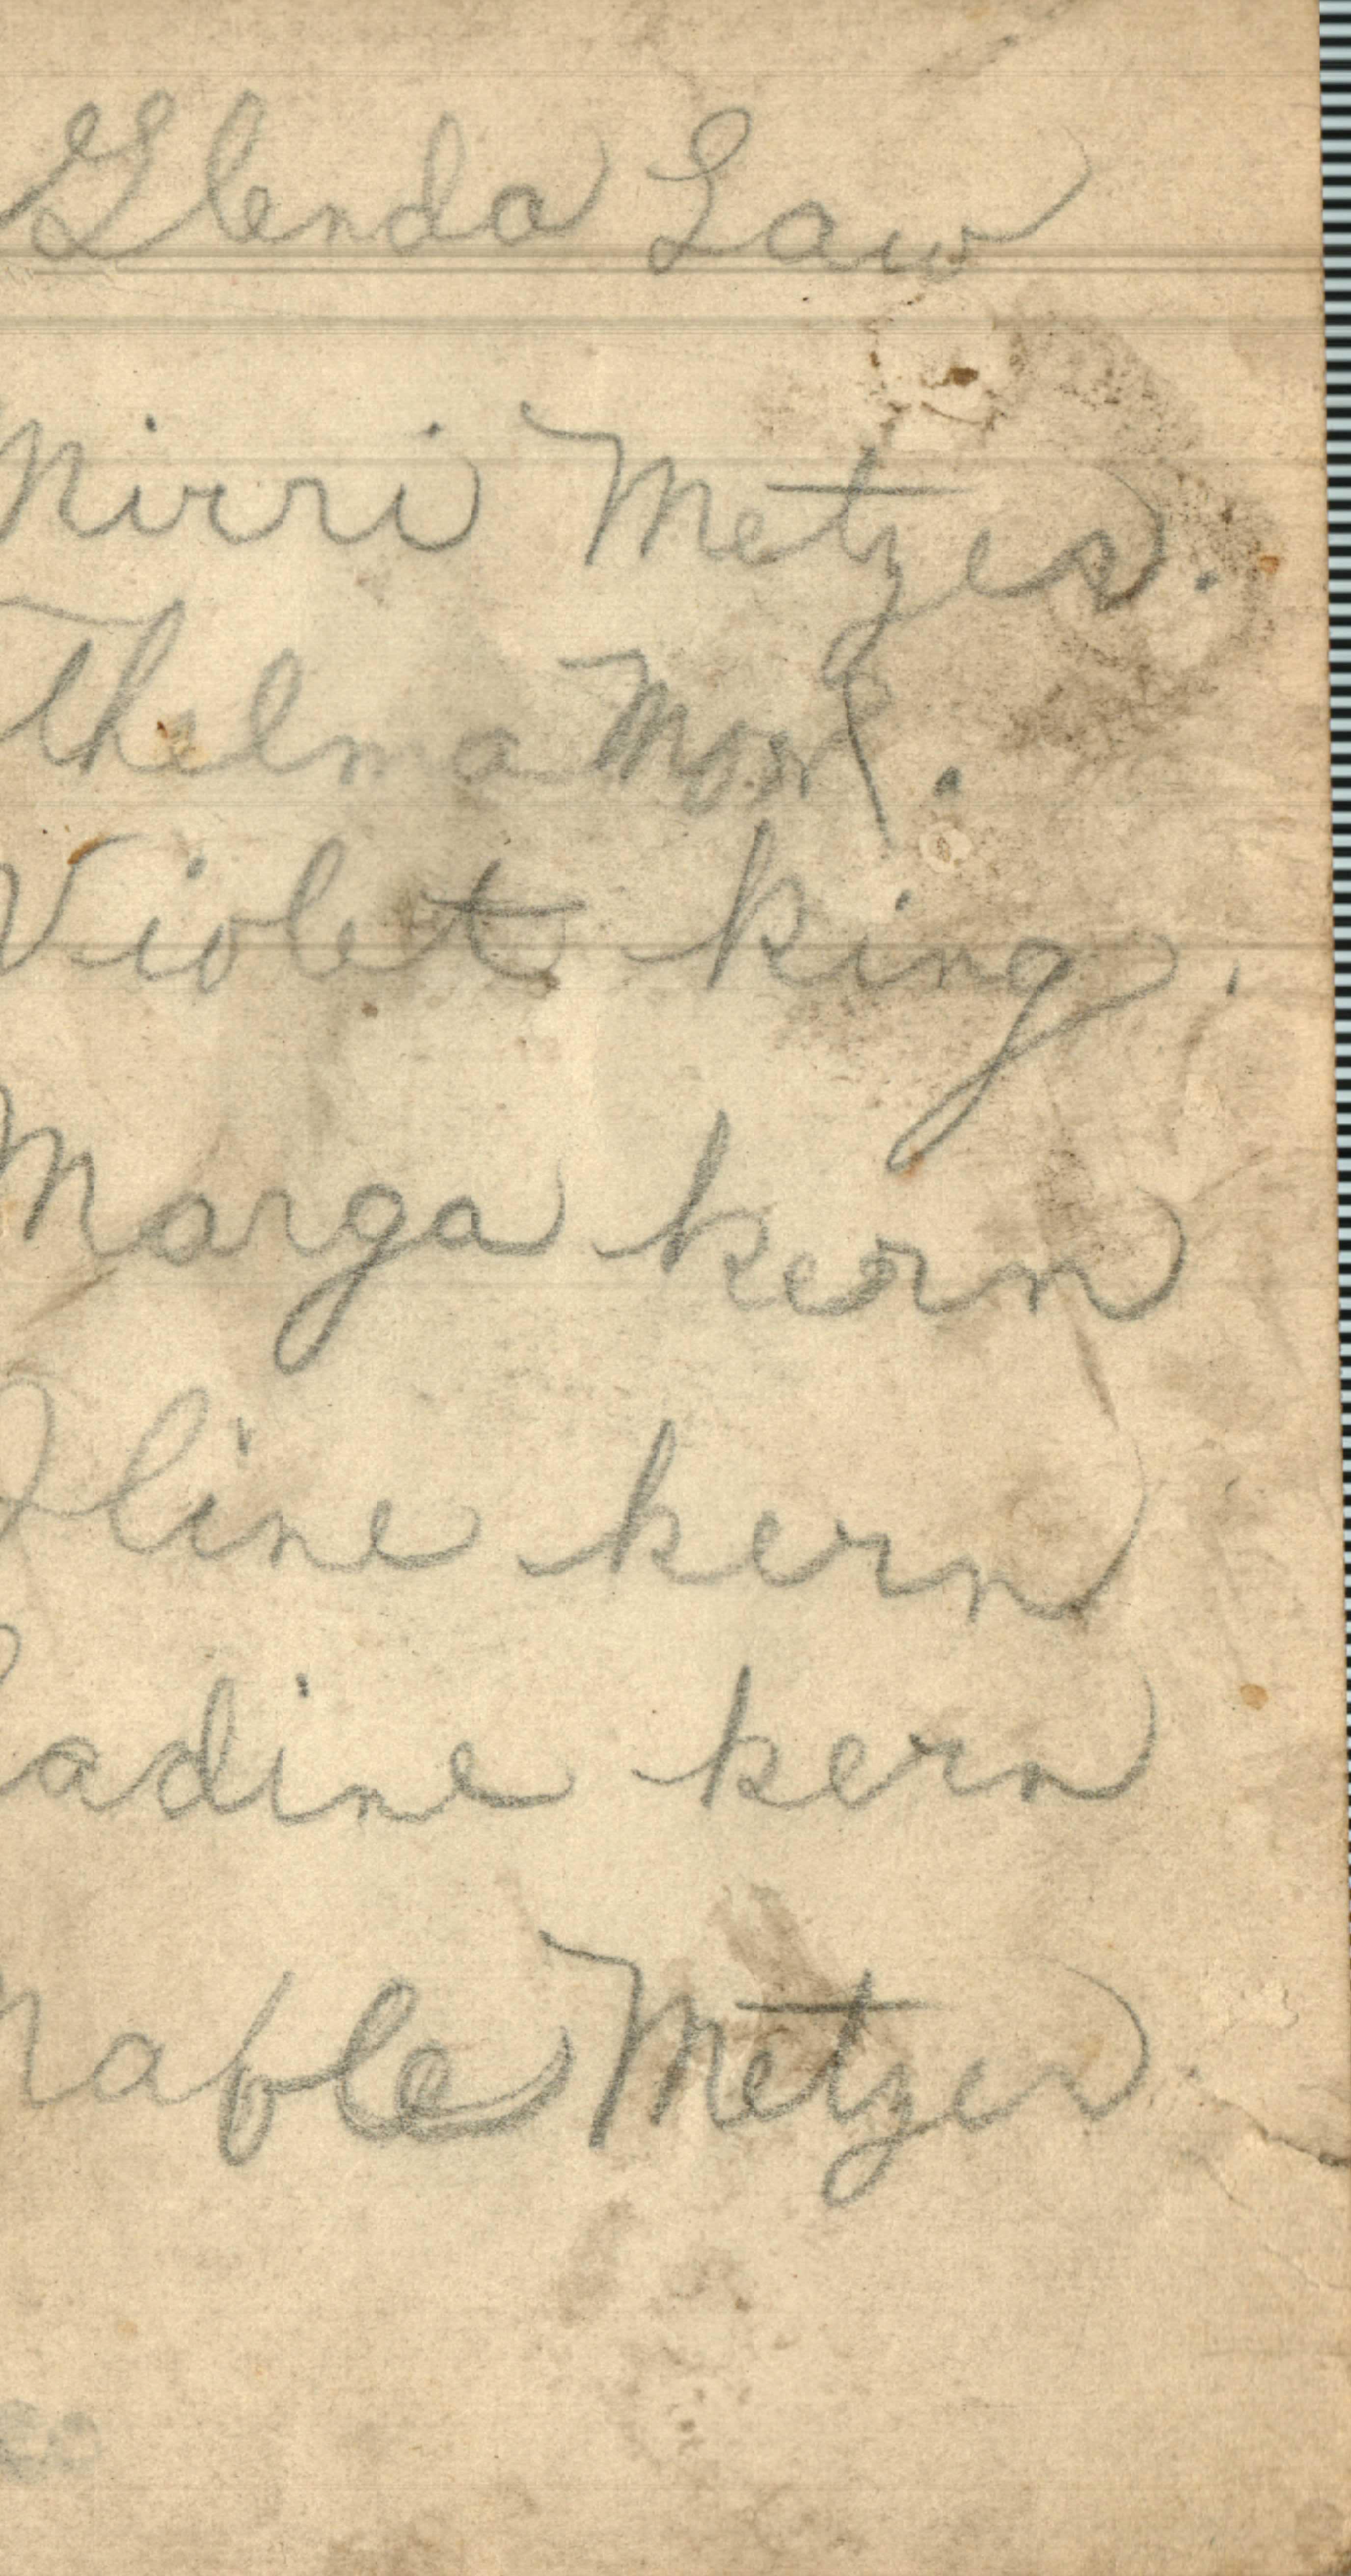 Glenda Law
Mirri Metzer.
Thelma
Violet King.
Marga kern
Oline kern
adine kern
Mable Metzer.